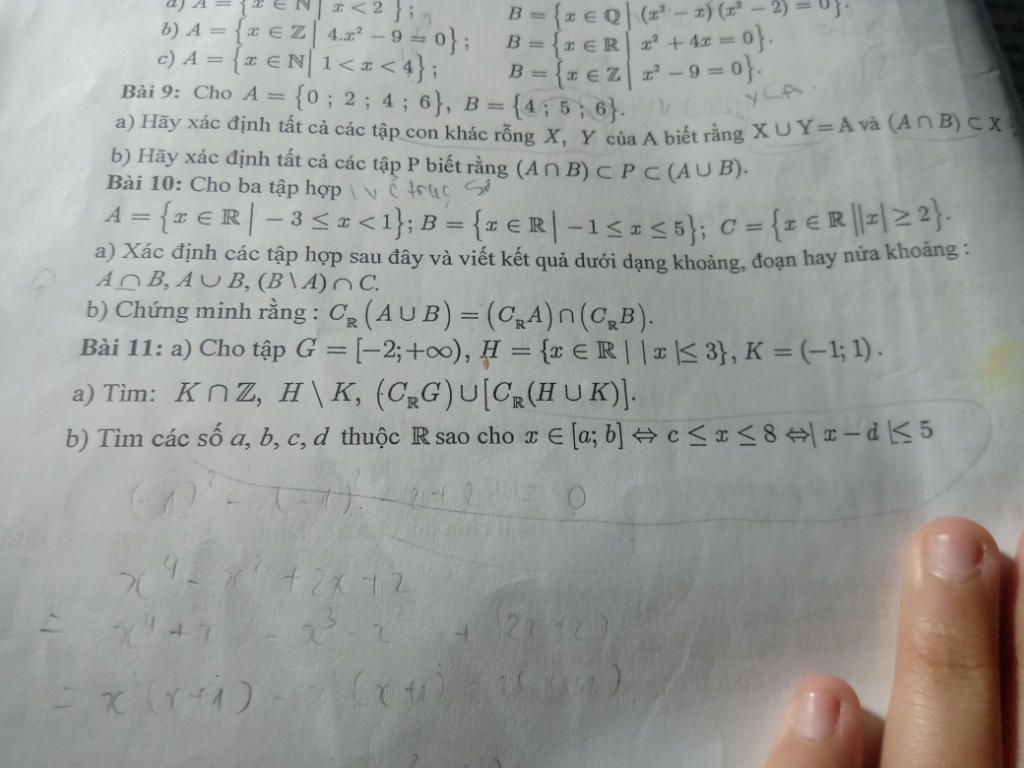 a) A = {x ∈ ℕ | x < 2 }; B = {x ∈ ℚ | (x² − x)(x² − 2) = 0}.
b) A = {x ∈ ℤ | 4.x² − 9 = 0}; B = {x ∈ ℝ | x² + 4x = 0}.
c) A = {x ∈ ℕ | 1 < x < 4}; B = {x ∈ ℤ | x² − 9 = 0}.
Bài 9: Cho A = {0 ; 2 ; 4 ; 6}, B = {4 ; 5 ; 6}. Y⊂A.
a) Hãy xác định tất cả các tập con khác rỗng X, Y của A biết rằng X ∪ Y = A và (A ∩ B) ⊂ X ;
b) Hãy xác định tất cả các tập P biết rằng (A ∩ B) ⊂ P ⊂ (A ∪ B).
Bài 10: Cho ba tập hợp
A = {x ∈ ℝ | − 3 ≤ x < 1}; B = {x ∈ ℝ | −1 ≤ x ≤ 5}; C = {x ∈ ℝ ||x| ≥ 2}.
a) Xác định các tập hợp sau đây và viết kết quả dưới dạng khoảng, đoạn hay nửa khoảng :
A ∩ B, A ∪ B, (B \ A) ∩ C.
b) Chứng minh rằng : C_ℝ (A ∪ B) = (C_ℝ A) ∩ (C_ℝ B).
Bài 11: a) Cho tập G = [−2; +∞), H = {x ∈ ℝ | | x |≤ 3}, K = (−1; 1) .
a) Tìm: K ∩ ℤ, H \ K, (C_ℝ G) ∪ [C_ℝ (H ∪ K)].
b) Tìm các số a, b, c, d thuộc ℝ sao cho x ∈ [a; b] ⇔ c ≤ x ≤ 8 ⇔| x − d |≤ 5
x⁴ − x² + 2x + 2